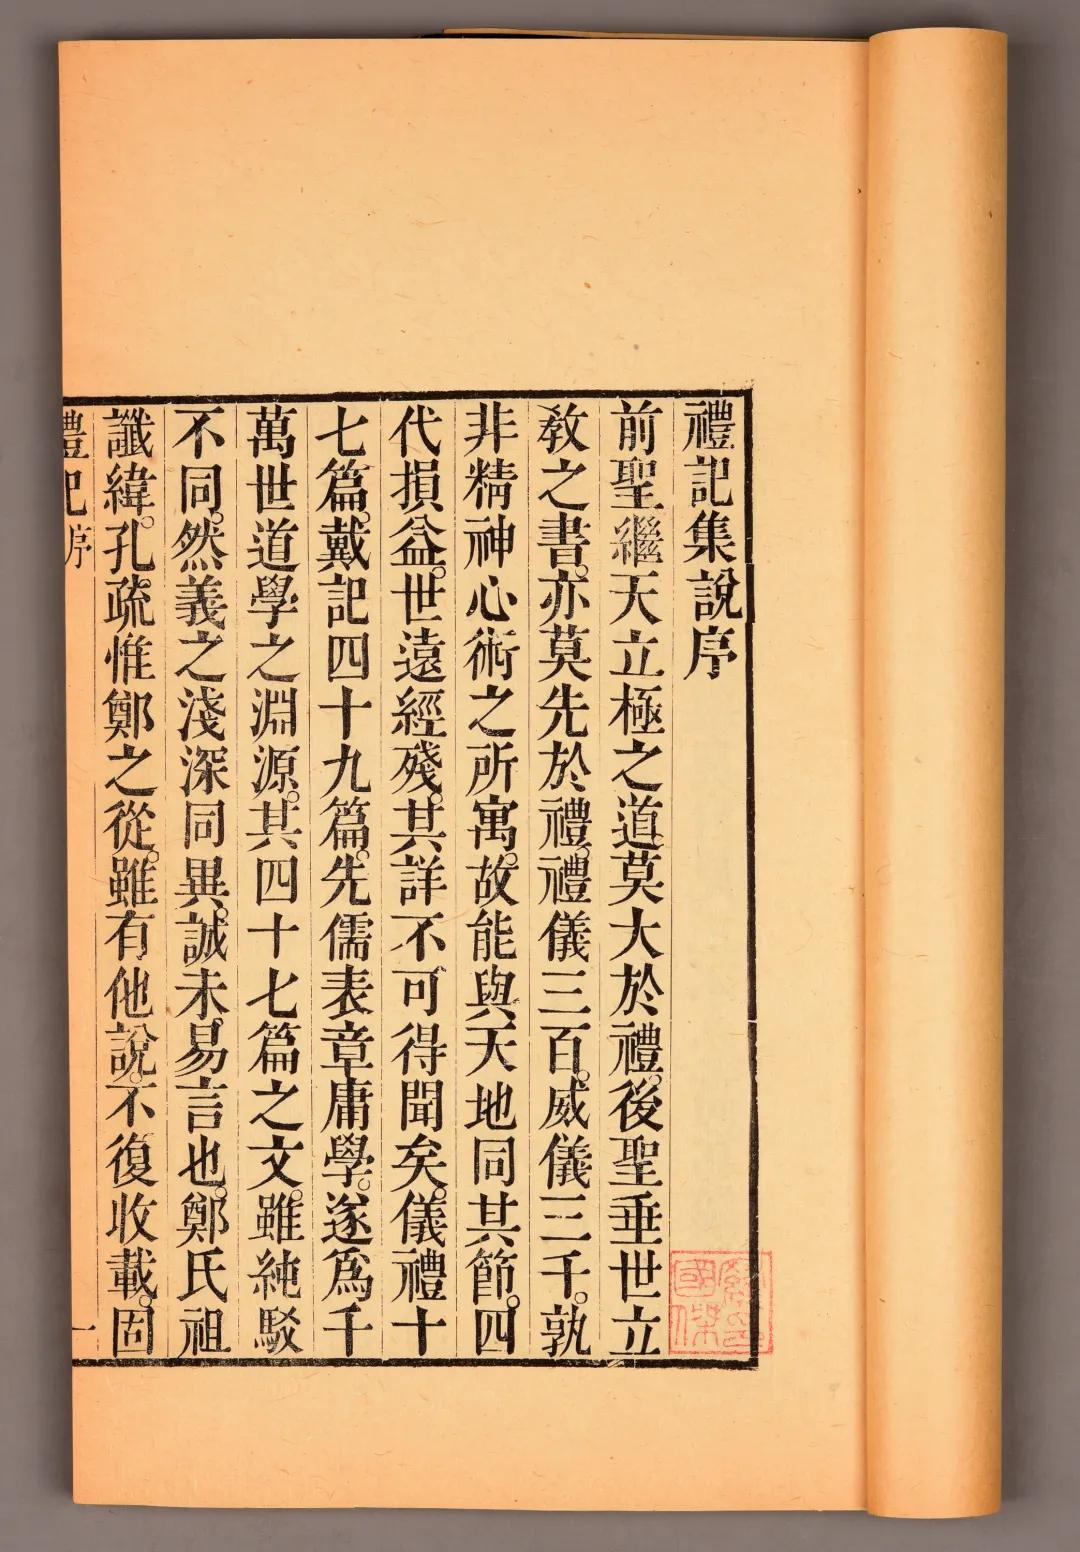 禮記集說序
前聖繼天立極之道莫大於禮。後聖垂世立
教之書。亦莫先於禮。禮儀三百。威儀三千。孰
非精神心術之所寓。故能與天地同其節。四
代損益。世遠經殘。其詳不可得聞矣。儀禮十
七篇。戴記四十九篇。先儒表章庸學。遂爲千
萬世道學之淵源。其四十七篇之文。雖純駁
不同。然義之淺深同異。誠未易言也。鄭氏祖
讖緯。孔疏惟鄭之從。雖有他說。不復收載。固
禮記序
一